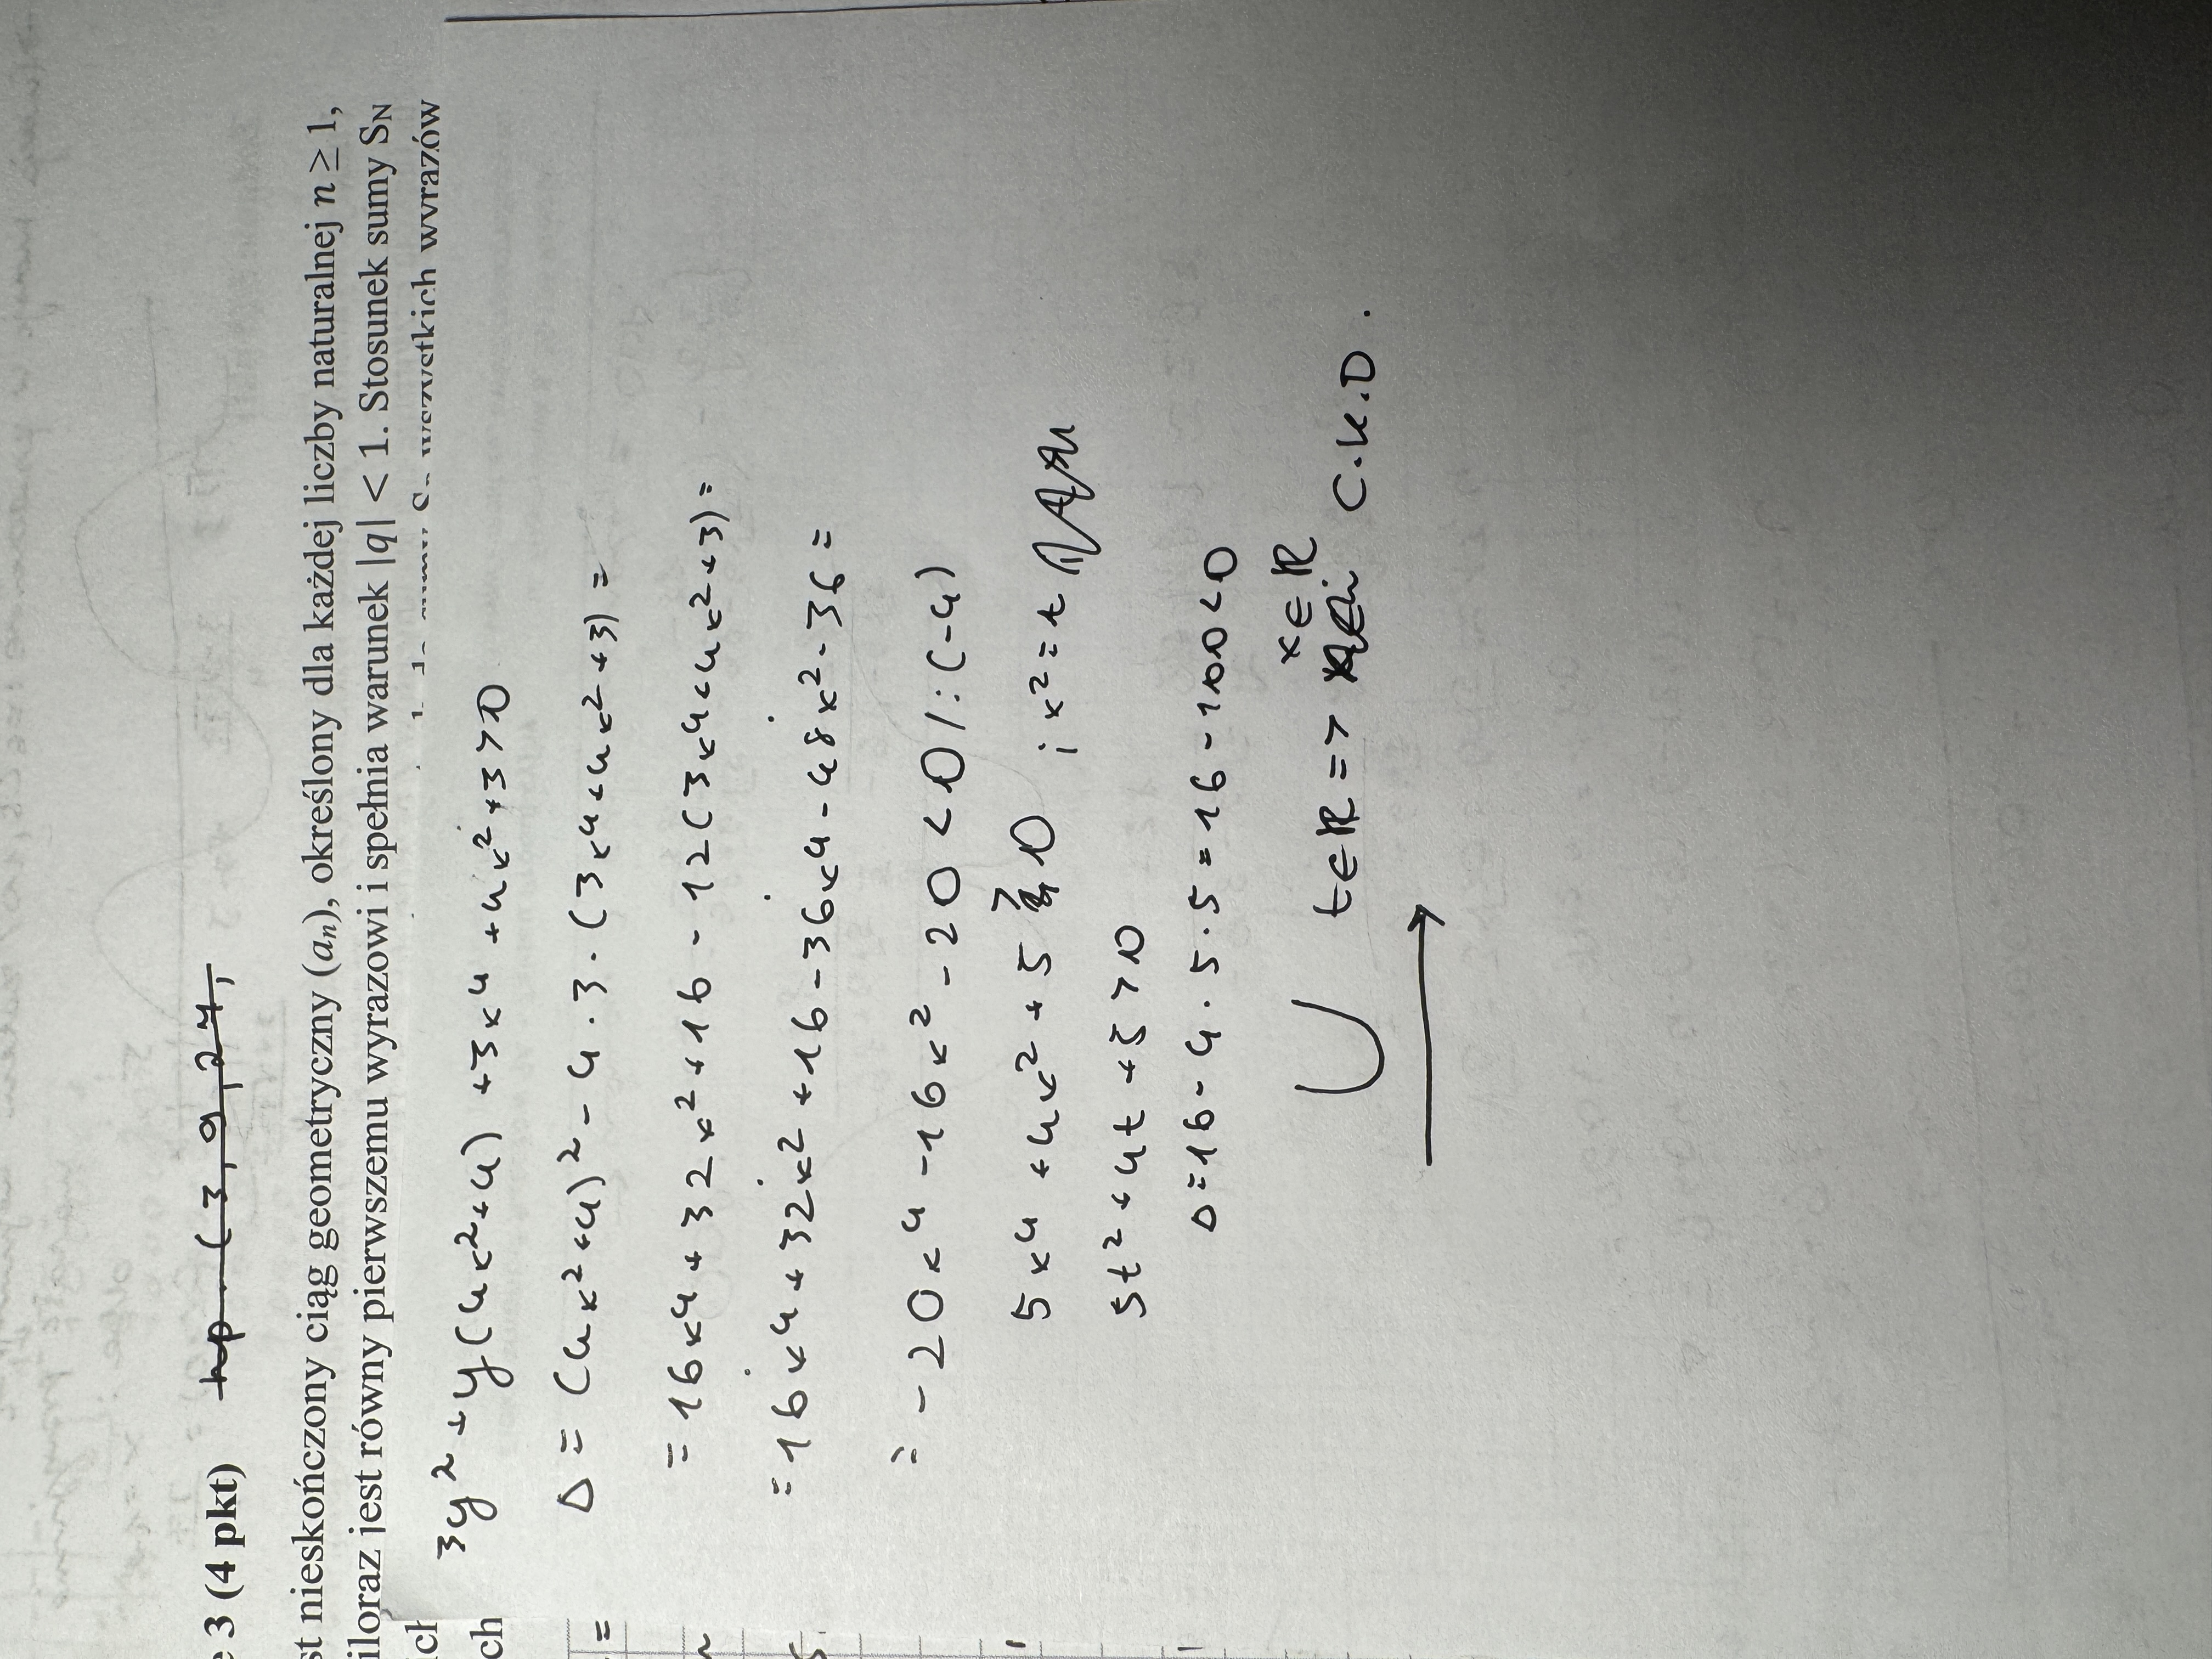 e 3 (4 pkt) np. (3, 9, 27,
st nieskończony ciąg geometryczny (aₙ), określony dla każdej liczby naturalnej n ≥ 1,
iloraz jest równy pierwszemu wyrazowi i spełnia warunek |q| < 1. Stosunek sumy S_N
wszystkich wyrazów
ich
ch
3y² + y(4x²+4) + 3x⁴ + 4x² + 3 > 0
Δ = (4x²+4)² - 4 · 3 · (3x⁴+4x²+3) =
= 16x⁴ + 32x² + 16 - 12(3x⁴+4x²+3) =
= 16x⁴ + 32x² + 16 - 36x⁴ - 48x² - 36 =
= -20x⁴ - 16x² - 20 < 0 /:(-4)
5x⁴ + 4x² + 5 > 0 ; x² = t
5t² + 4t + 5 > 0
Δ = 16 - 4 · 5 · 5 = 16 - 100 < 0
t∈ℝ => x∈ℝ C.K.D.